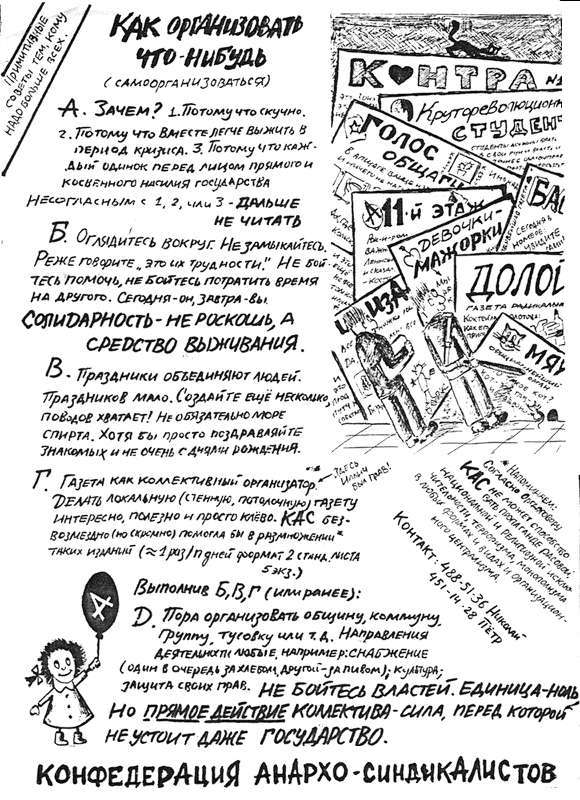 Примитивные
советы тем, кому
надо больше всех.
Как организовать
что-нибудь
(самоорганизоваться)
А. Зачем? 1. Потому что скучно.
2. Потому что вместе легче выжить в
период кризиса. 3. Потому что каж-
дый одинок перед лицом прямого и
косвенного насилия государства
Несогласным с 1, 2, или 3 - дальше
не читать
Б. Оглядитесь вокруг. Не замыкайтесь.
Реже говорите „это их трудности." Не бой-
тесь помочь, не бойтесь потратить время
на другого. Сегодня-он, завтра-вы.
Солидарность - не роскошь, а
средство выживания.
В. Праздники объединяют людей.
Праздников мало. Создайте ещё несколько,
поводов хватает! Не обязательно море
спирта. Хотя бы просто поздравляйте
знакомых и не очень с днями рождения.
Г. Газета как коллективный организатор.*
* Здесь
Ильич
был прав!
Делать локальную (стенную, потолочную) газету
интересно, полезно и просто клёво. КАС без-
возмездно (но скромно) помогла бы в размножении*
таких изданий (≈1 раз/n дней формат 2 станд. листа
5 экз.)
* Напоминаем:
Согласно оргдоговору
КАС не может способство-
вать пропаганде расовой,
национальной и религиозной исклю-
чительности, терроризма, монополизма
в любых формах и видах и организацион-
ного централизма.
Контакт - 488-51-36 Николай
451-14-28 Пётр
Выполнив Б, В, Г (или ранее):
D. Пора организовать общину, коммуну,
группу, тусовку или т.д. Направления
деятельности любые, например: снабжение
(один в очередь за хлебом, другой-за пивом); культура;
защита своих прав. Не бойтесь властей. Единица-ноль
Но прямое действие колектива-сила, перед которой
не устоит даже государство.
А
Конфедерация анархо-синдикалистов
К♥нтра №1
Крутореволюцион
Студен
Голос
общаг
11-й этаж
Девочки-
мажорки
Ба
Сегодня в
номере
Долой
Газета радикальн
Изда
Мяу